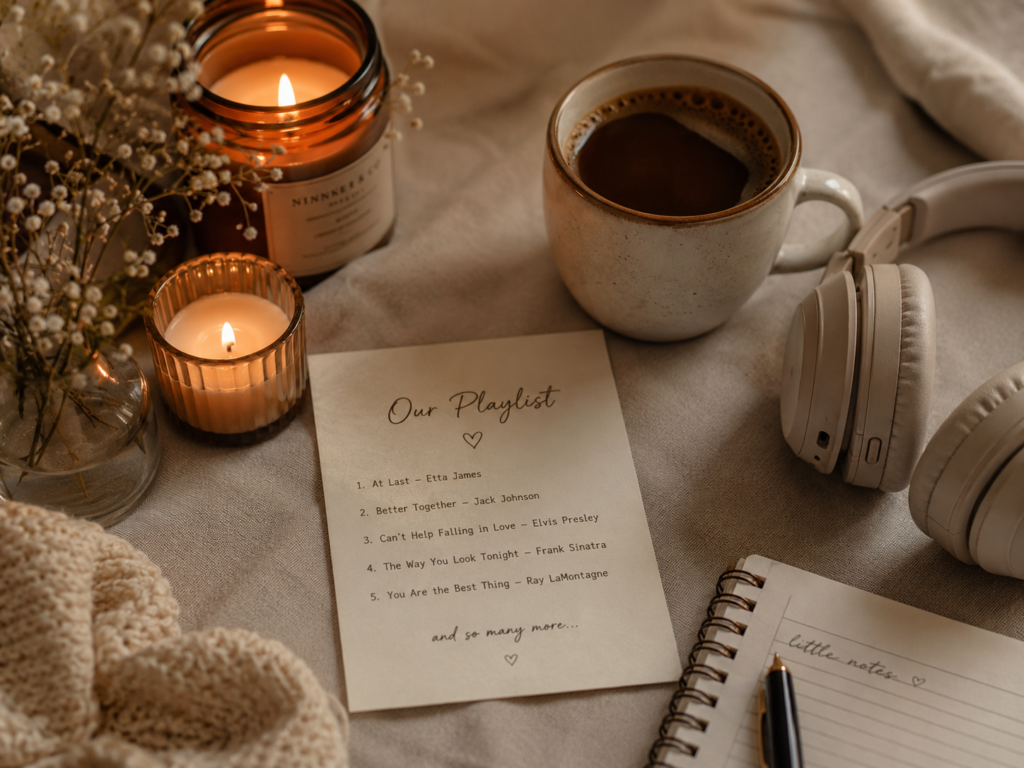 Our Playlist
1. At Last – Etta James
2. Better Together – Jack Johnson
3. Can't Help Falling in Love – Elvis Presley
4. The Way You Look Tonight – Frank Sinatra
5. You Are the Best Thing – Ray LaMontagne
and so many more...
little notes